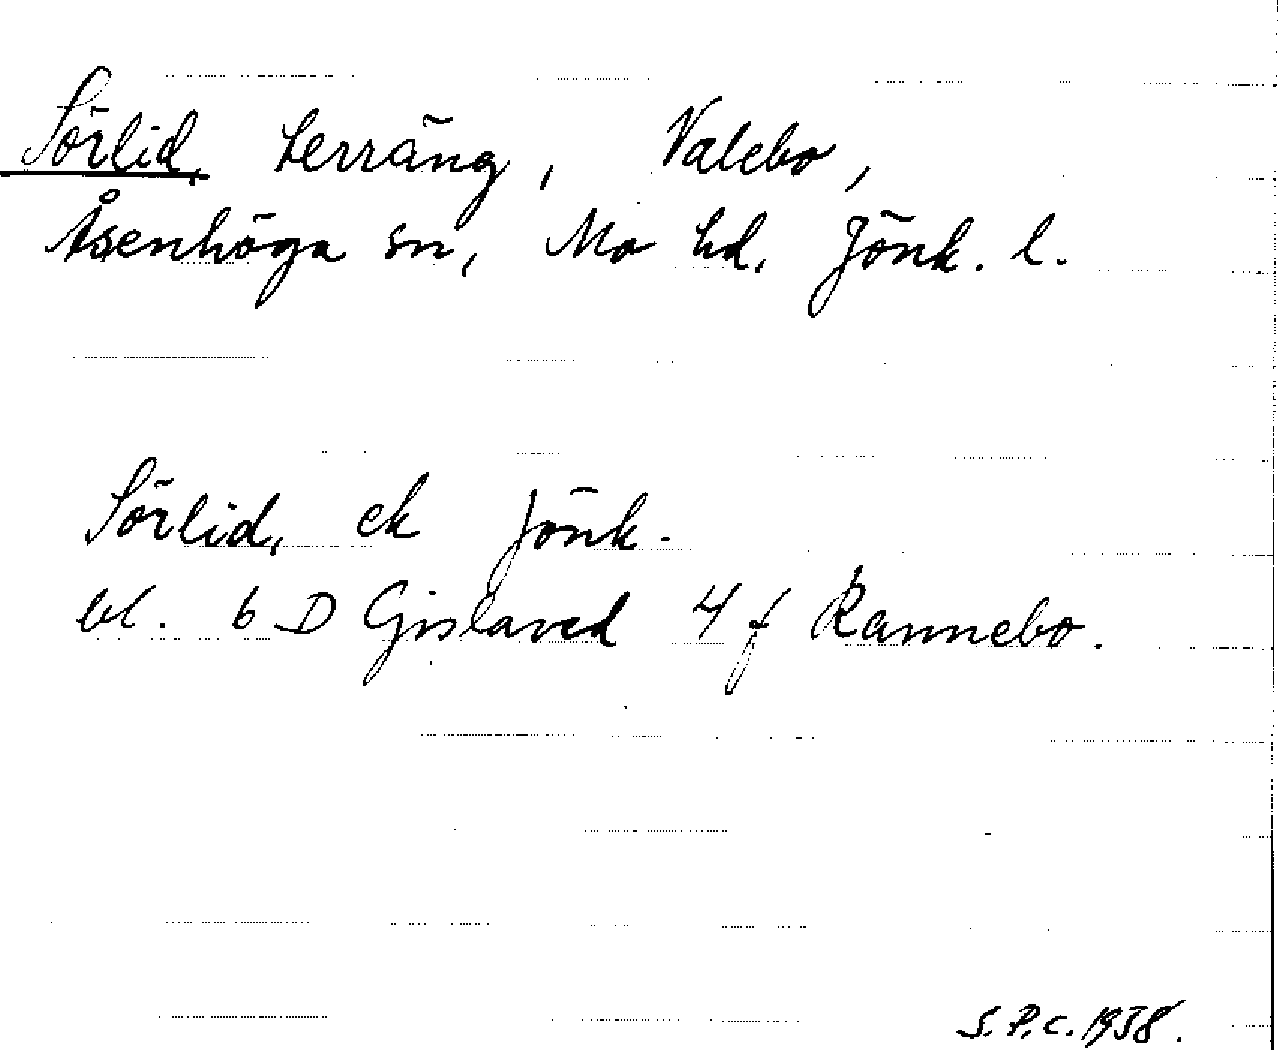 Sörlid, terräng, Valebo,
Åsenhöga sn, Mo hd. Jönk. l.
Sörlid, ek Jönk.
bl. 6 D Gislaved 4 f Rannebo.
S.P.C. 1958.